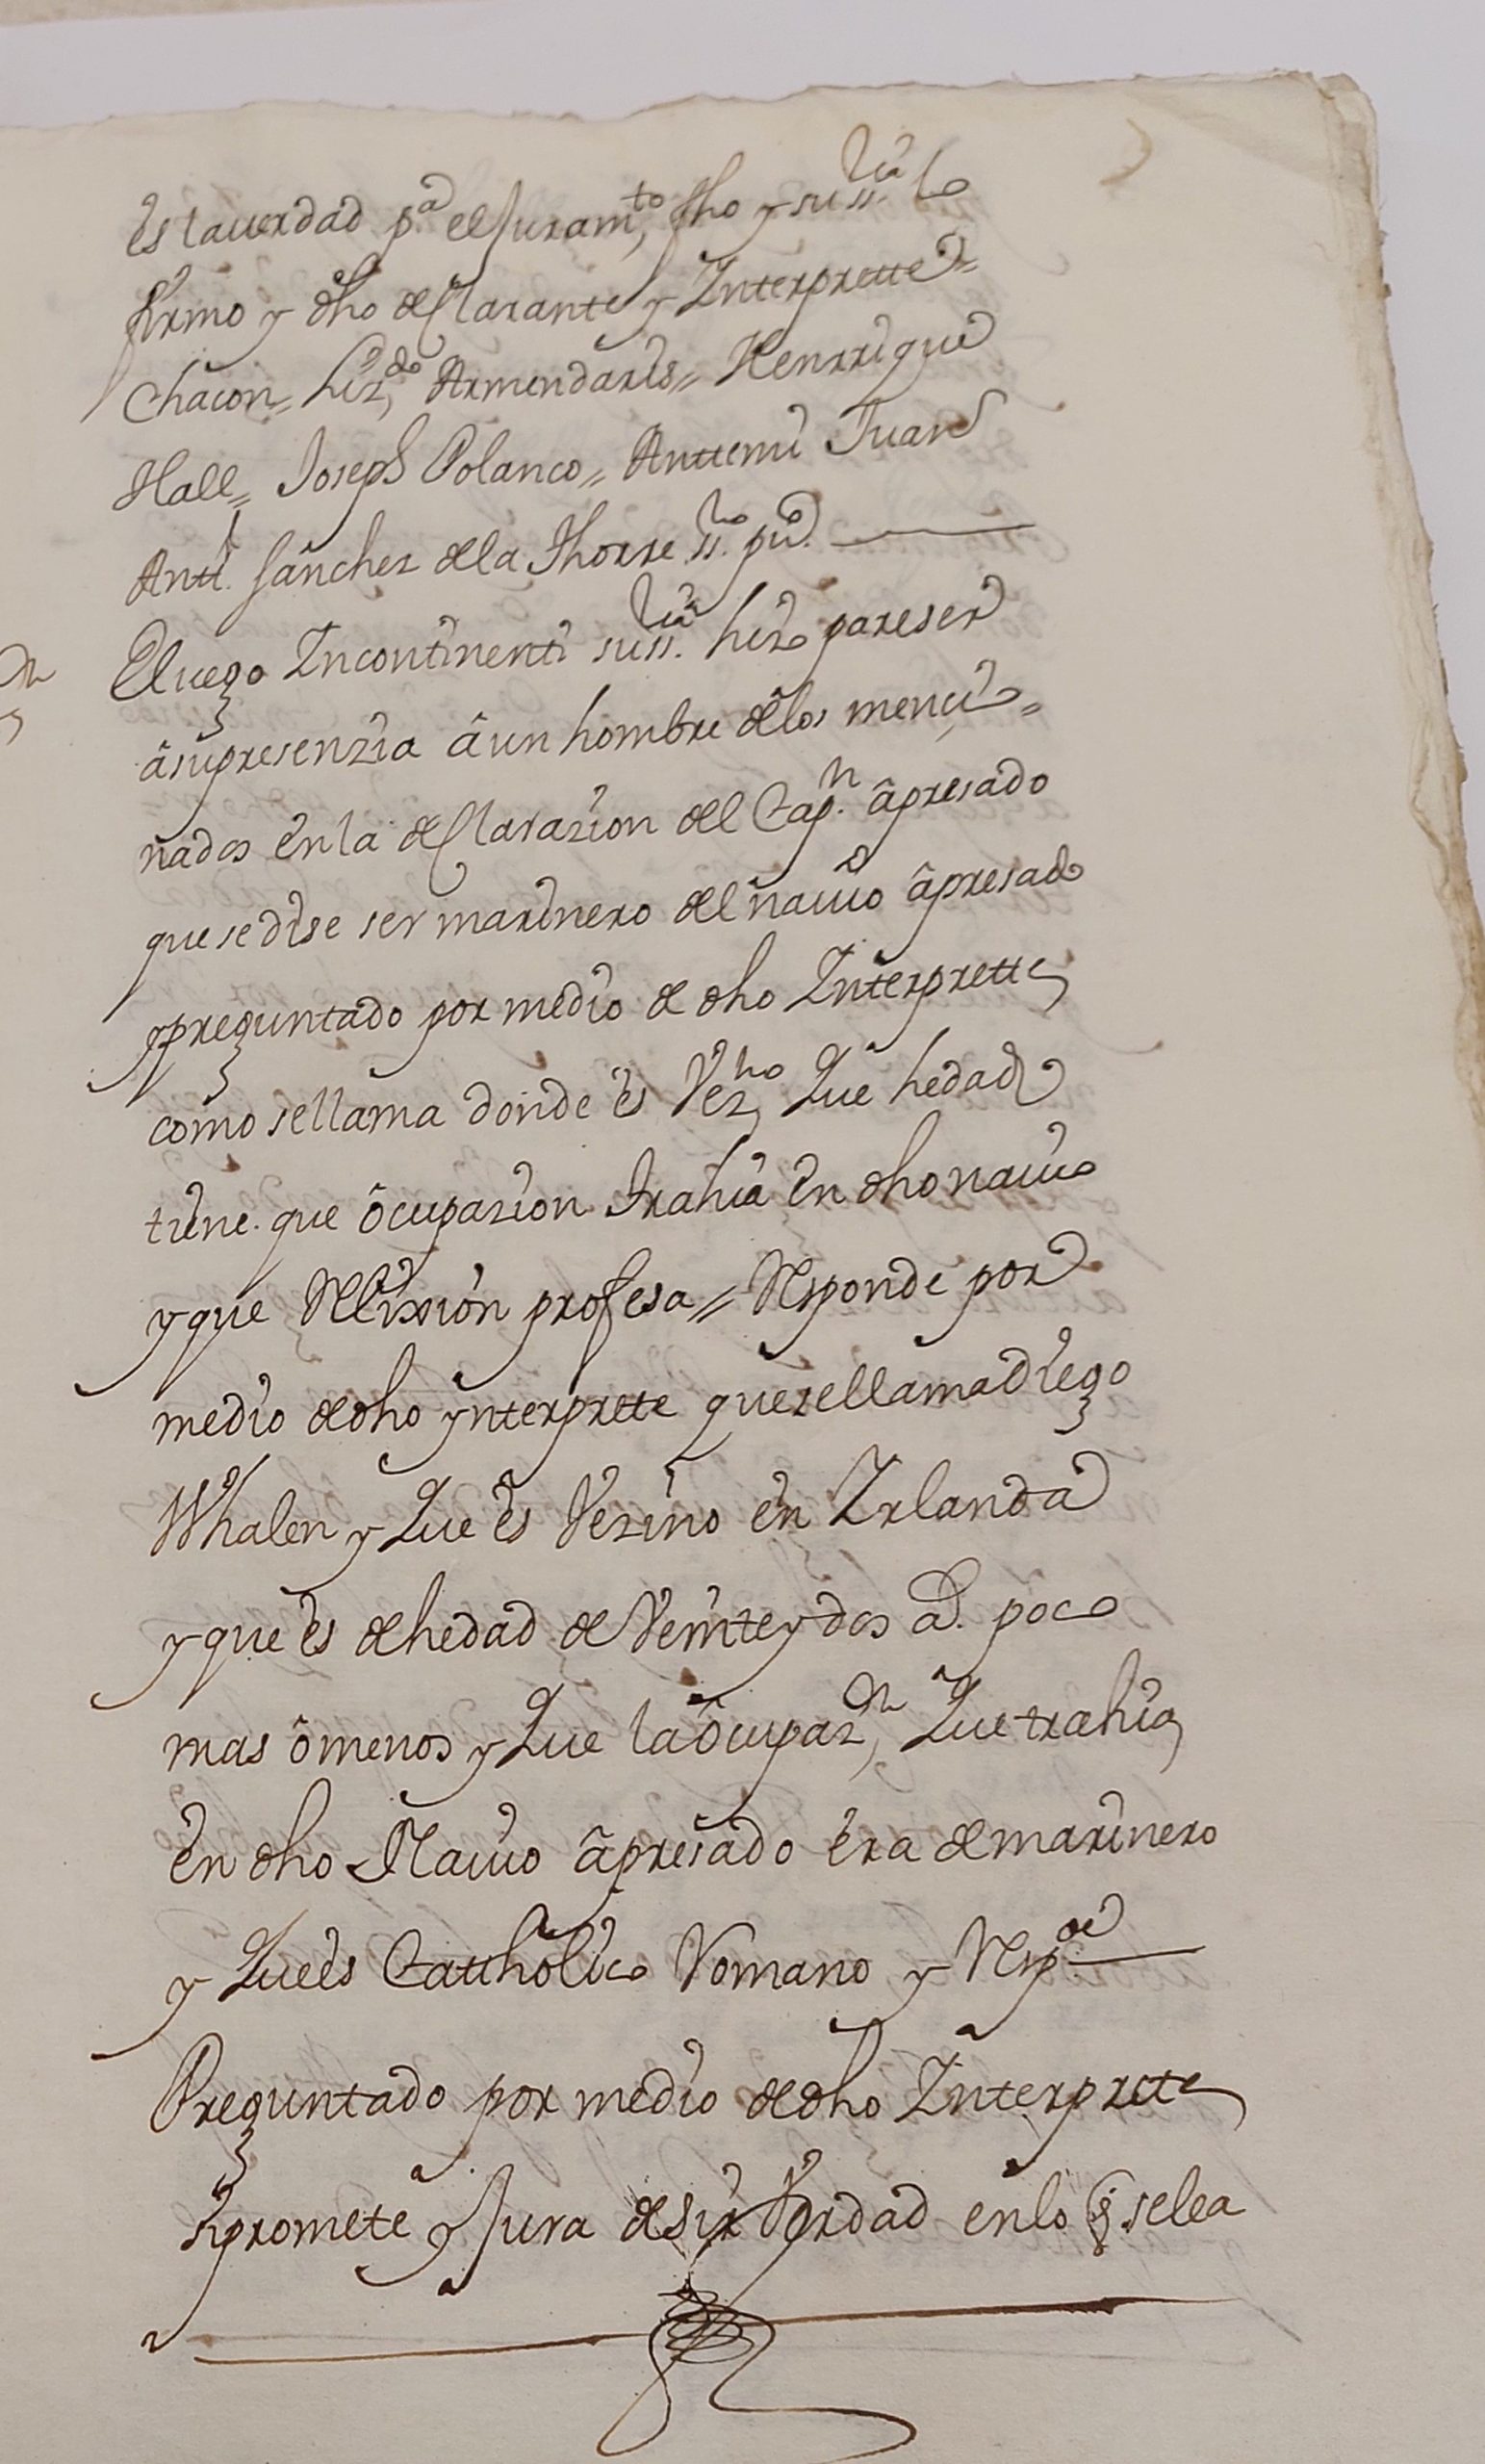 Es lauerdad p.ª el Juram.to fho y su ss.ria lo
firmo y dho declarante y Interprette =
Chacon = Liz.do Armendaris = Henrrique
Hall = Joseph Polanco = Anttemi Juan
Antt. Sanchez dela Thorre ss.no pu.co
E luego Incontinenti su ss.ria hizo pareser
asupresenzia a un hombre delos mencio=
nados en la declarazion del Cap.n apresado
que se dise ser marinero del nauio apresado
ypreguntado por medio de dho Interprette
como sellama donde es Vez.no Que hedad
tiene. que ocupazion trahia en dho nauio
y que Relixion profesa = Responde por
medio de dho ynterprete que sellama Diego
Whalen y Que es Vezino en Irlanda
y que es de hedad de Veinte y dos a.s poco
mas omenos y Que la ocupaz.n Que trahia
en dho Nauio apresado era de marinero
y Que es Catthòlico Romano y Resp.de
Preguntado por medio de dho Interprete
sipromete y Jura desir Verdad enlo q. selea